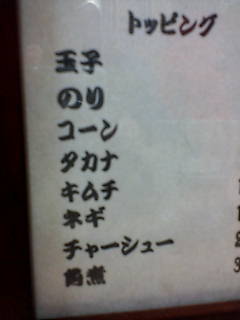 トッピング
玉子
のり
コーン
タカナ
キムチ
ネギ
チャーシュー
角煮